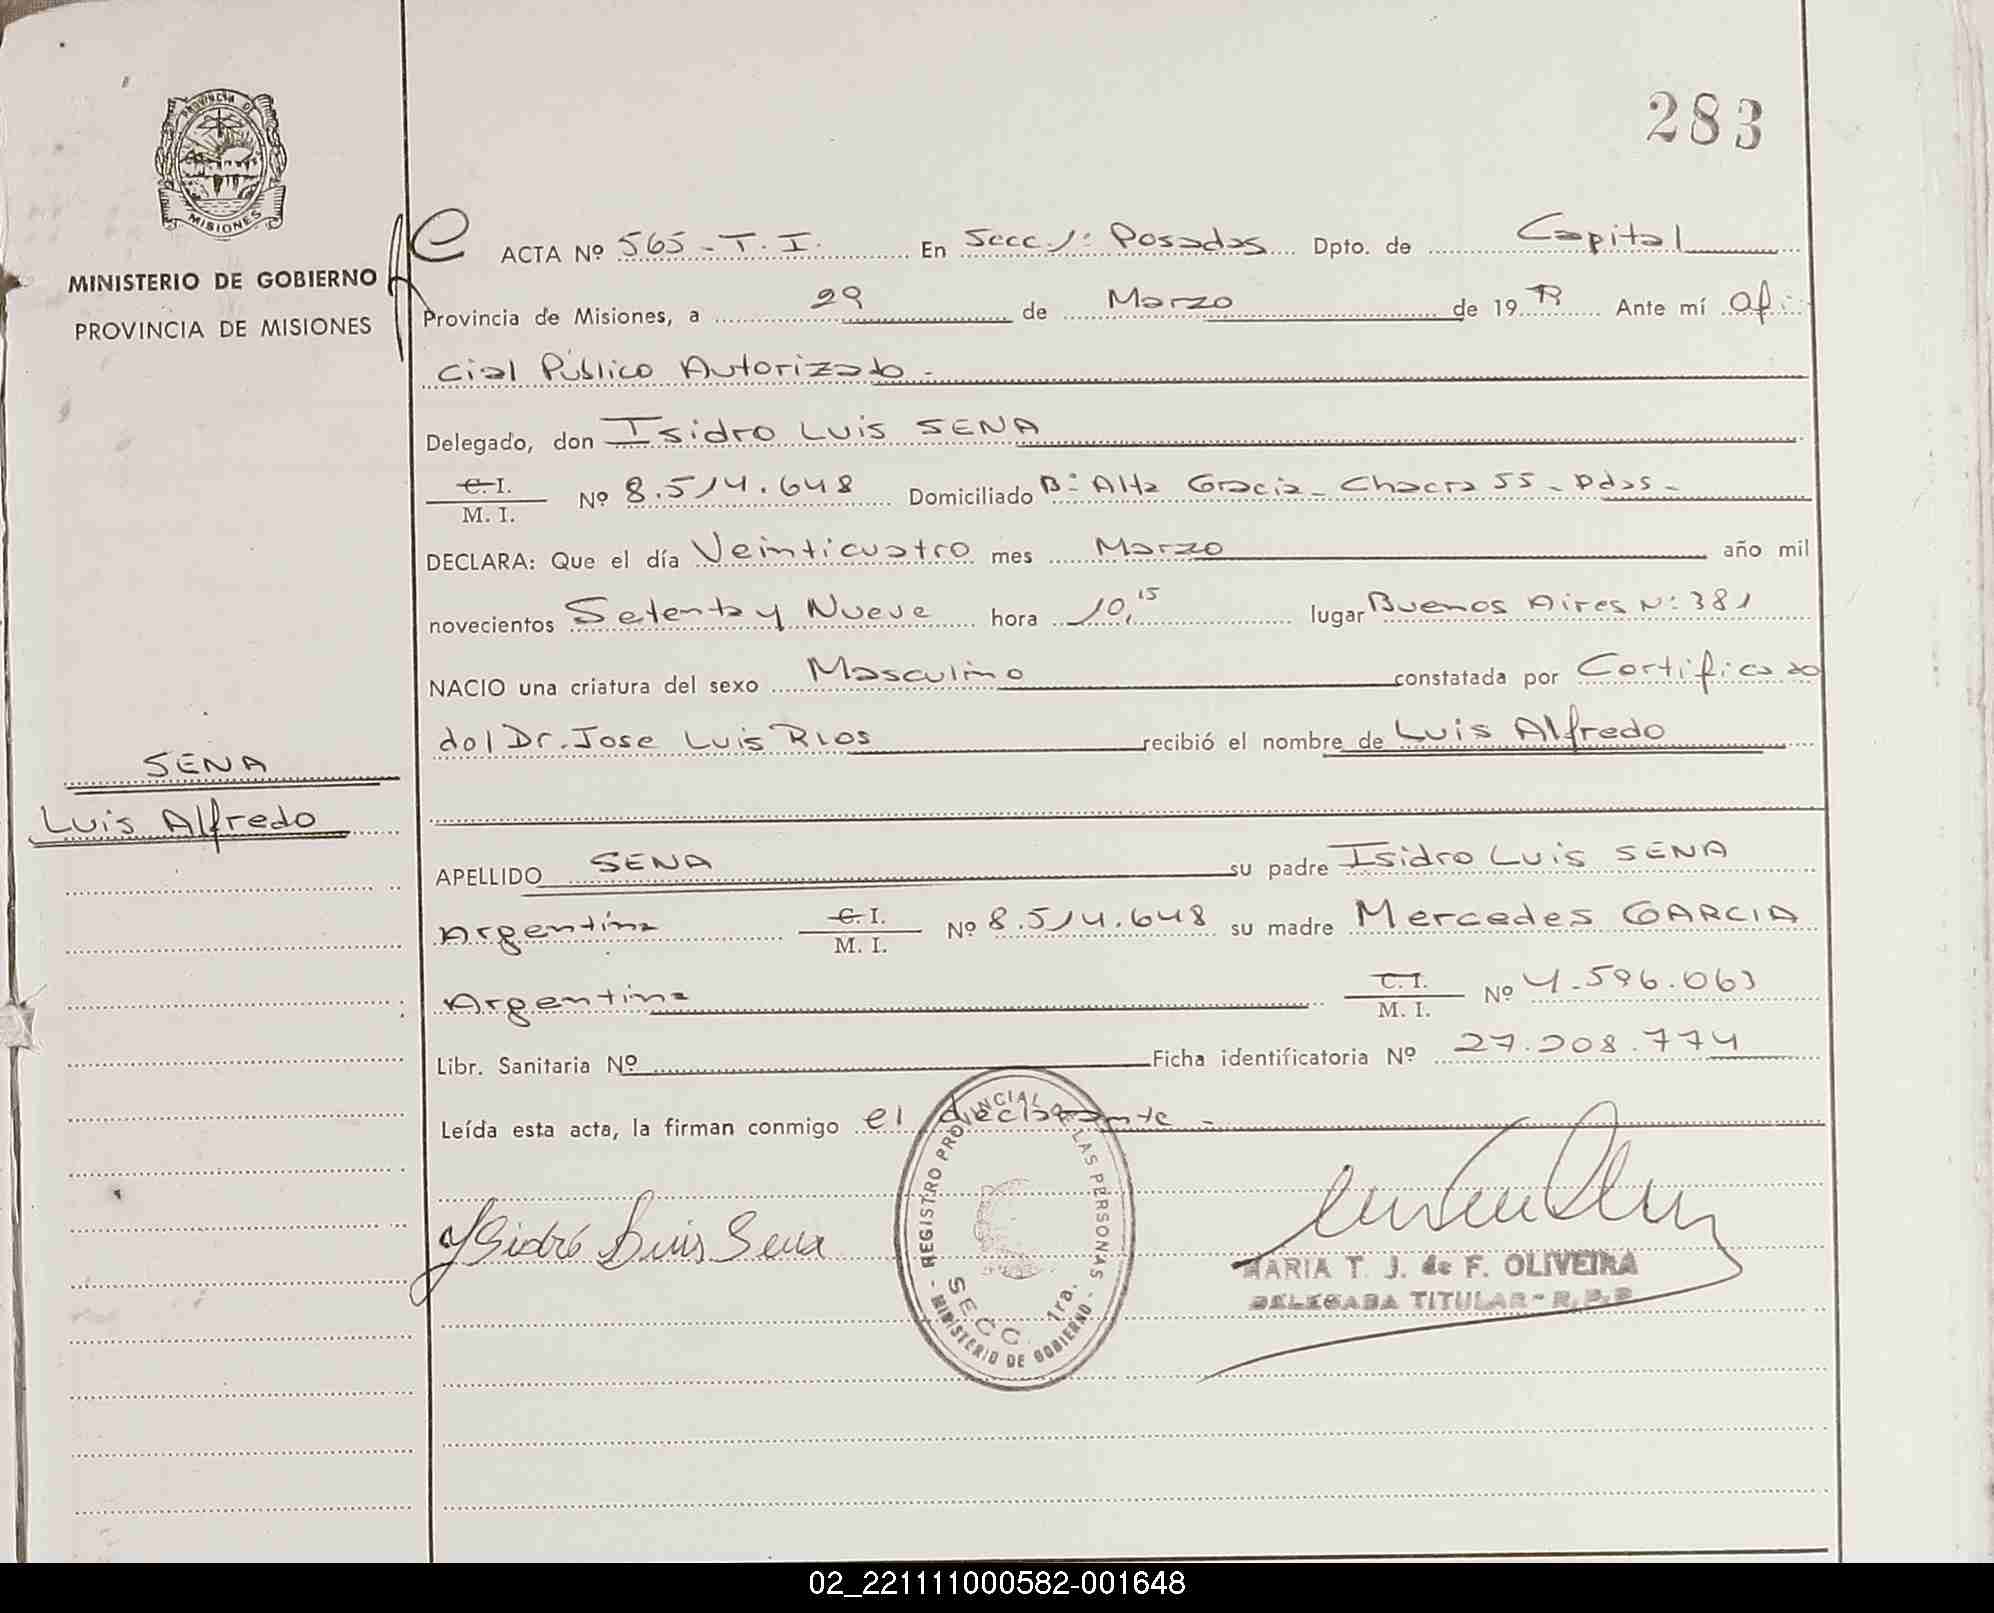 283
PROVINCIA DE
MISIONES
MINISTERIO DE GOBIERNO
PROVINCIA DE MISIONES
ACTA Nº 565 - T. I. En Secc. 1ª Posadas Dpto. de Capital
Provincia de Misiones, a 29 de Marzo de 19 79 Ante mí Ofi
cial Público Autorizado -
Delegado, don Isidro Luis SENA
C. I.
M. I.
Nº 8.514.648 Domiciliado Bº Alta Gracia - Chacra 55 - Pdas -
DECLARA: Que el día Veinticuatro mes Marzo año mil
novecientos Setenta y Nueve hora 10,15 lugar Buenos Aires Nº 381
NACIO una criatura del sexo Masculino constatada por Certificado
del Dr. Jose Luis RIOS recibió el nombre de Luis Alfredo
SENA
Luis Alfredo
APELLIDO SENA su padre Isidro Luis SENA
Argentina C. I.
M. I.
Nº 8.514.648 su madre Mercedes GARCIA
Argentina C. I.
M. I.
Nº 4.596.063
Libr. Sanitaria Nº Ficha identificatoria Nº 27.208.774
Leída esta acta, la firman conmigo el declarante -
REGISTRO PROVINCIAL DE LAS PERSONAS
SECC. 1ra.
MINISTERIO DE GOBIERNO
Ysidro Luis Sena
MARIA T. J. de F. OLIVEIRA
DELEGADA TITULAR - R.P.P
02_221111000582-001648